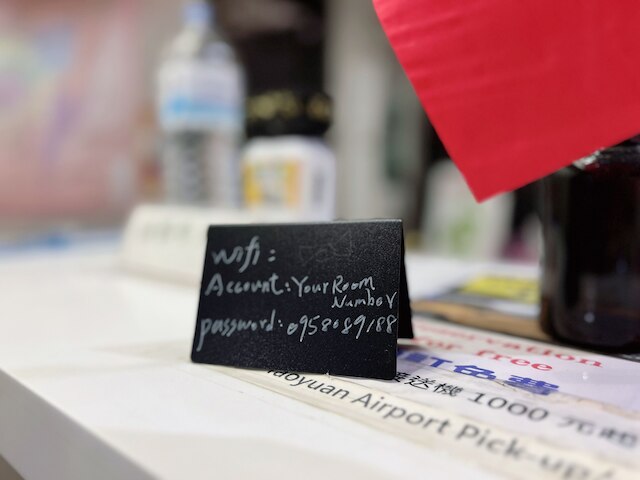 wifi:
Account: Your Room
Number
password: 0958089188
ervation
or free
訂免費
接送機 1000 元起
aoyuan Airport Pick-up/